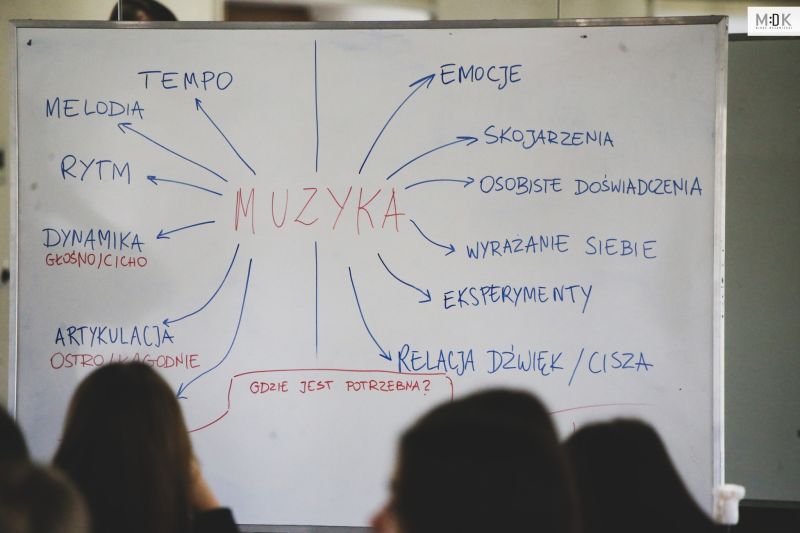 M:DK
TEMPO
MELODIA
RYTM
DYNAMIKA
GŁOŚNO/CICHO
ARTYKULACJA
OSTRO/ŁAGODNIE
MUZYKA
EMOCJE
SKOJARZENIA
OSOBISTE DOŚWIADCZENIA
WYRAŻANIE SIEBIE
EKSPERYMENTY
RELACJA DŹWIĘK/CISZA
GDZIE JEST POTRZEBNA?